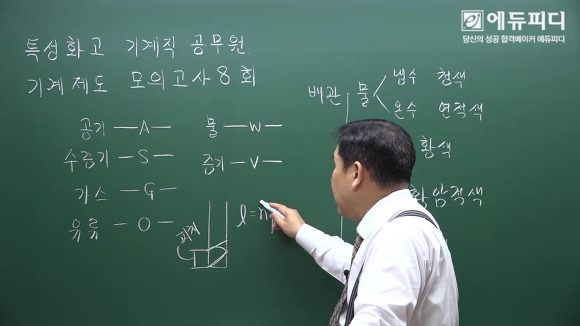 에듀피디
당신의 성공 합격메이커 에듀피디
특성화고 기계직 공무원
기계제도 모의고사 8회
공기 —A—
수증기 —S—
가스 —G—
유류 —O—
물 —W—
증기 —V—
배관
물
냉수 청색
온수 연적색
황색
암적색
피치
l=n